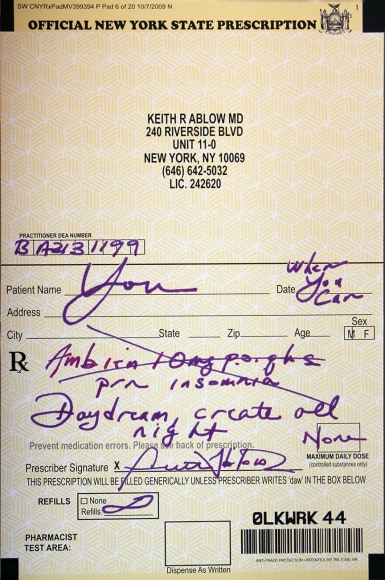 SW CNYRxPadMV399394 P Pad 6 of 20 10/7/2009 N 1
OFFICIAL NEW YORK STATE PRESCRIPTION
KEITH R ABLOW MD
240 RIVERSIDE BLVD
UNIT 11-0
NEW YORK, NY 10069
(646) 642-5032
LIC. 242620
PRACTITIONER DEA NUMBER
BA2131199
Patient Name You Date When You Can
Address
City State Zip Age Sex
M F
Rx Ambien 10mg p.o. qhs
prn insomnia
Daydream, create all
night
None
Prevent medication errors. Please see back of prescription.
MAXIMUM DAILY DOSE
(controlled substances only)
Prescriber Signature X
THIS PRESCRIPTION WILL BE FILLED GENERICALLY UNLESS PRESCRIBER WRITES 'daw' IN THE BOX BELOW
REFILLS None
Refills: ∞
0LKWRK 44
PHARMACIST
TEST AREA:
Dispense As Written